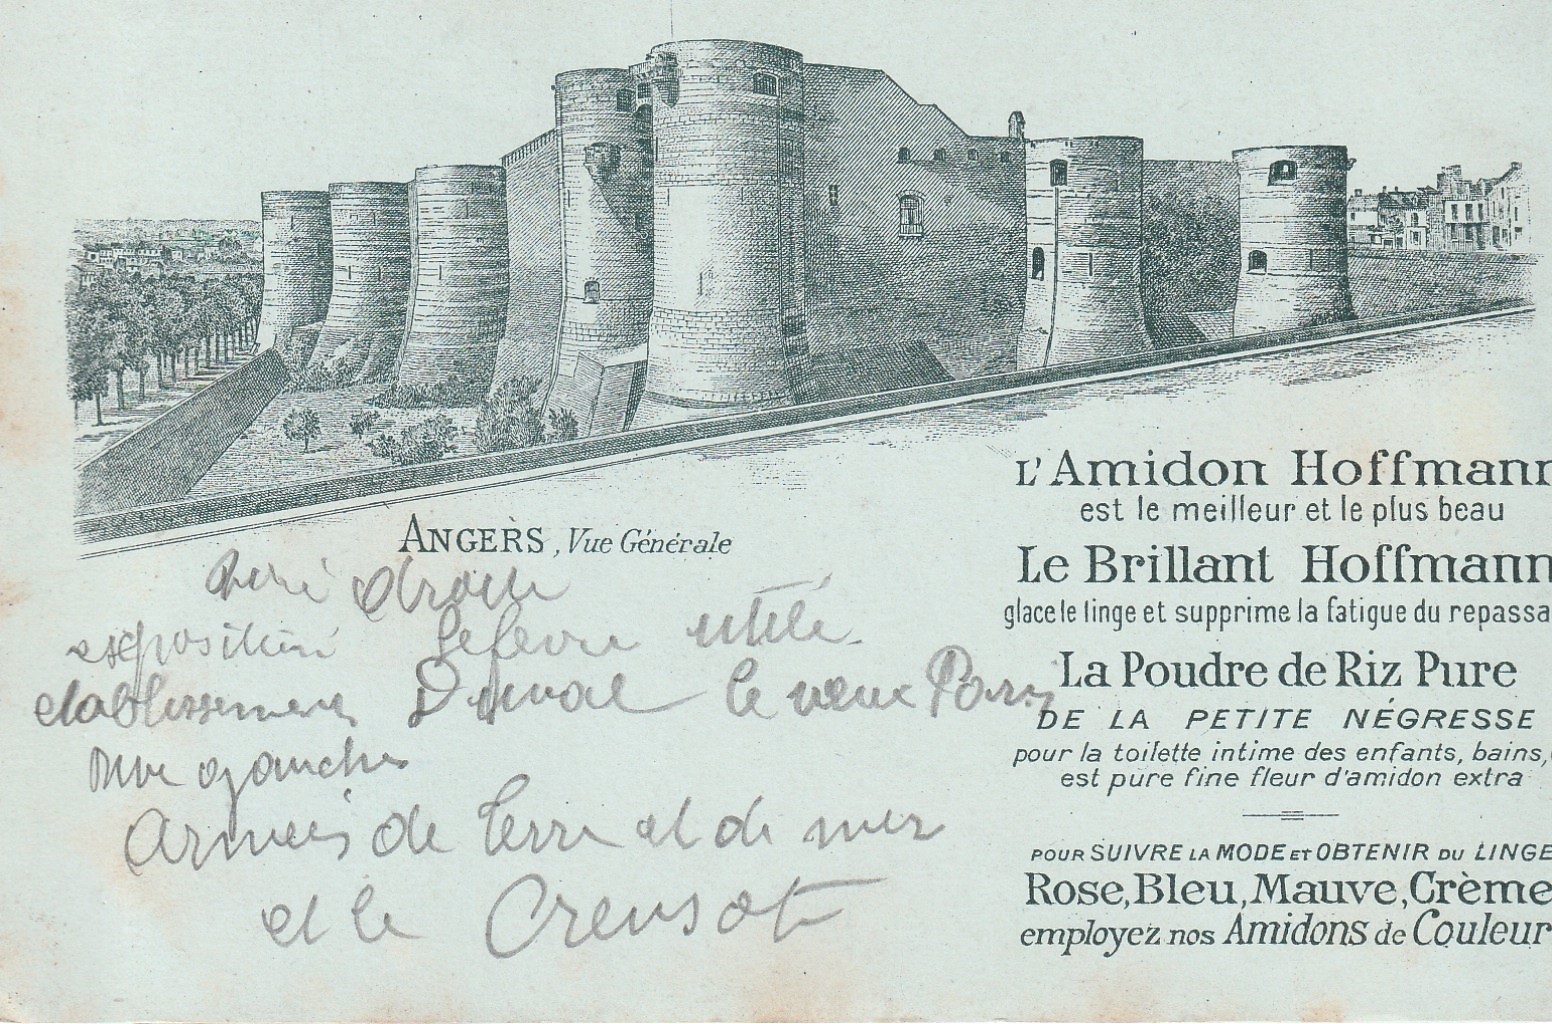 ANGERS, Vue Générale
droite
exposition Lefevre utile
etablissements Duval le vieux Paris
rive gauche
Armées de Terre et de mer
et le Creusot
L'Amidon Hoffmann
est le meilleur et le plus beau
Le Brillant Hoffmann
glace le linge et supprime la fatigue du repassa
La Poudre de Riz Pure
DE LA PETITE NÉGRESSE
pour la toilette intime des enfants, bains,
est pure fine fleur d'amidon extra
POUR SUIVRE LA MODE ET OBTENIR DU LINGE
Rose, Bleu, Mauve, Crème
employez nos Amidons de Couleur